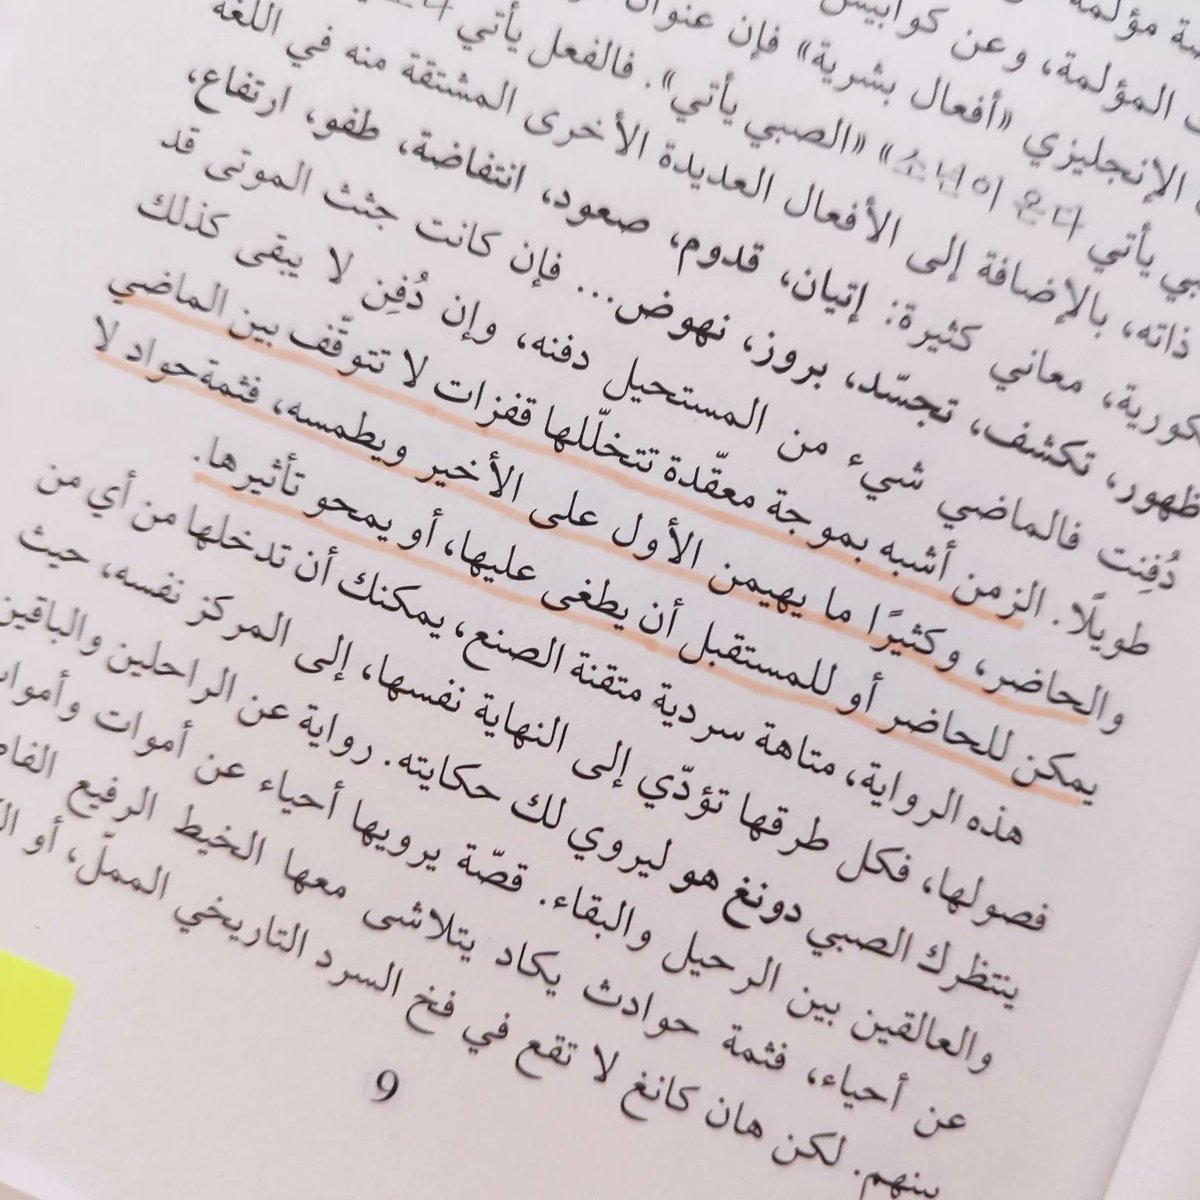 صة مؤلمة
المؤلمة، وعن كوابيس
الإنجليزي «أفعال بشرية» فإن عنوان
بي يأتي 소년이 온다» «الصبي يأتي». فالفعل يأتي
ذاته، بالإضافة إلى الأفعال العديدة الأخرى المشتقة منه في اللغة
كورية، معاني كثيرة: إتيان، قدوم، صعود، انتفاضة، طفو، ارتفاع،
ظهور، تكشف، تجسّد، بروز، نهوض... فإن كانت جثث الموتى قد
دُفِنت فالماضي شيء من المستحيل دفنه، وإن دُفِن لا يبقى كذلك
طويلًا. الزمن أشبه بموجة معقّدة تتخلّلها قفزات لا تتوقّف بين الماضي
والحاضر، وكثيرًا ما يهيمن الأول على الأخير ويطمسه، فثمة حواد لا
يمكن للحاضر أو للمستقبل أن يطغى عليها، أو يمحو تأثيرها.
هذه الرواية، متاهة سردية متقنة الصنع، يمكنك أن تدخلها من أي من
فصولها، فكل طرقها تؤدّي إلى النهاية نفسها، إلى المركز نفسه، حيث
ينتظرك الصبي دونغ هو ليروي لك حكايته. رواية عن الراحلين والباقين
والعالقين بين الرحيل والبقاء. قصّة يرويها أحياء عن أموات وأموات
عن أحياء، فثمة حوادث يكاد يتلاشى معها الخيط الرفيع
بينهم. لكن هان كانغ لا تقع في فخ السرد التاريخي المملّ، أو
9